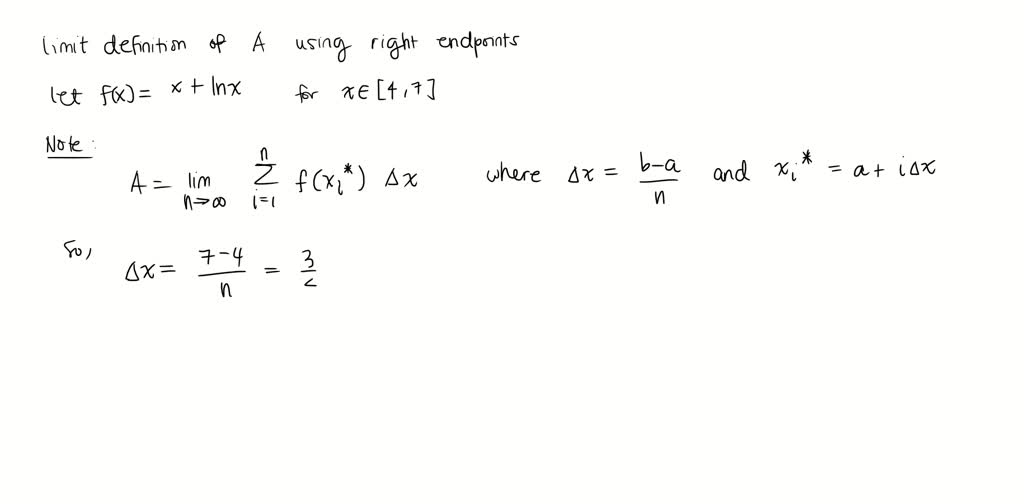 limit definition of A using right endpoints
let f(x) = x + ln x for x ∈ [4,7]
Note:
A = lim n→∞ n Σ i=1 f(xᵢ*) Δx where Δx = b-a / n and xᵢ* = a + iΔx
So,
Δx = 7-4 / n = 3 /